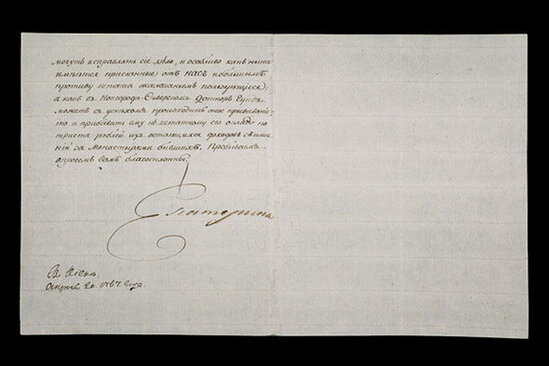 могутъ исправлять сіе дѣло, и особливо какъ ныне
имѣются присланные отъ насъ и большимъ
противу штата жалованьемъ пользующіеся;
а какъ въ Новгородѣ-Сѣверскомъ Докторъ
можетъ съ успѣхомъ производить оное прививаніе,
то и прибавить ему къ штатному его окладу по
триста рублей изъ остающихся доходовъ съ имѣ-
ній за Монастырями бывшихъ. Пребываемъ
впрочемъ вамъ благосклонны.
Екатерина
Въ Кіевѣ.
Апрѣля 20. 1787. года